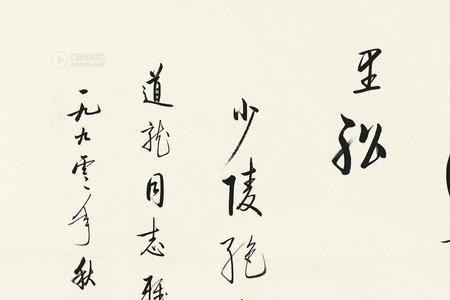 里船
少陵絕
道龍同志雅
一九九零年秋